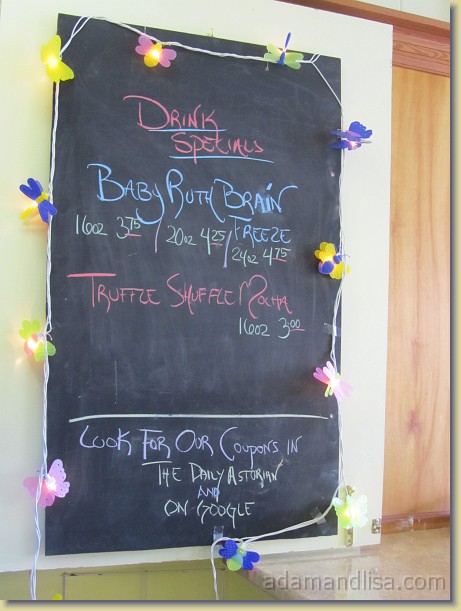 DRINK
SPECIALS
BABY RUTH BRAIN
FREEZE
16oz 3.75 / 20oz 4.25 / 24oz 4.75
TRUFFLE SHUFFLE MOCHA
16oz 3.00
LOOK FOR OUR COUPONS IN
THE DAILY ASTORIAN
AND
ON GOOGLE
adamandlisa.com